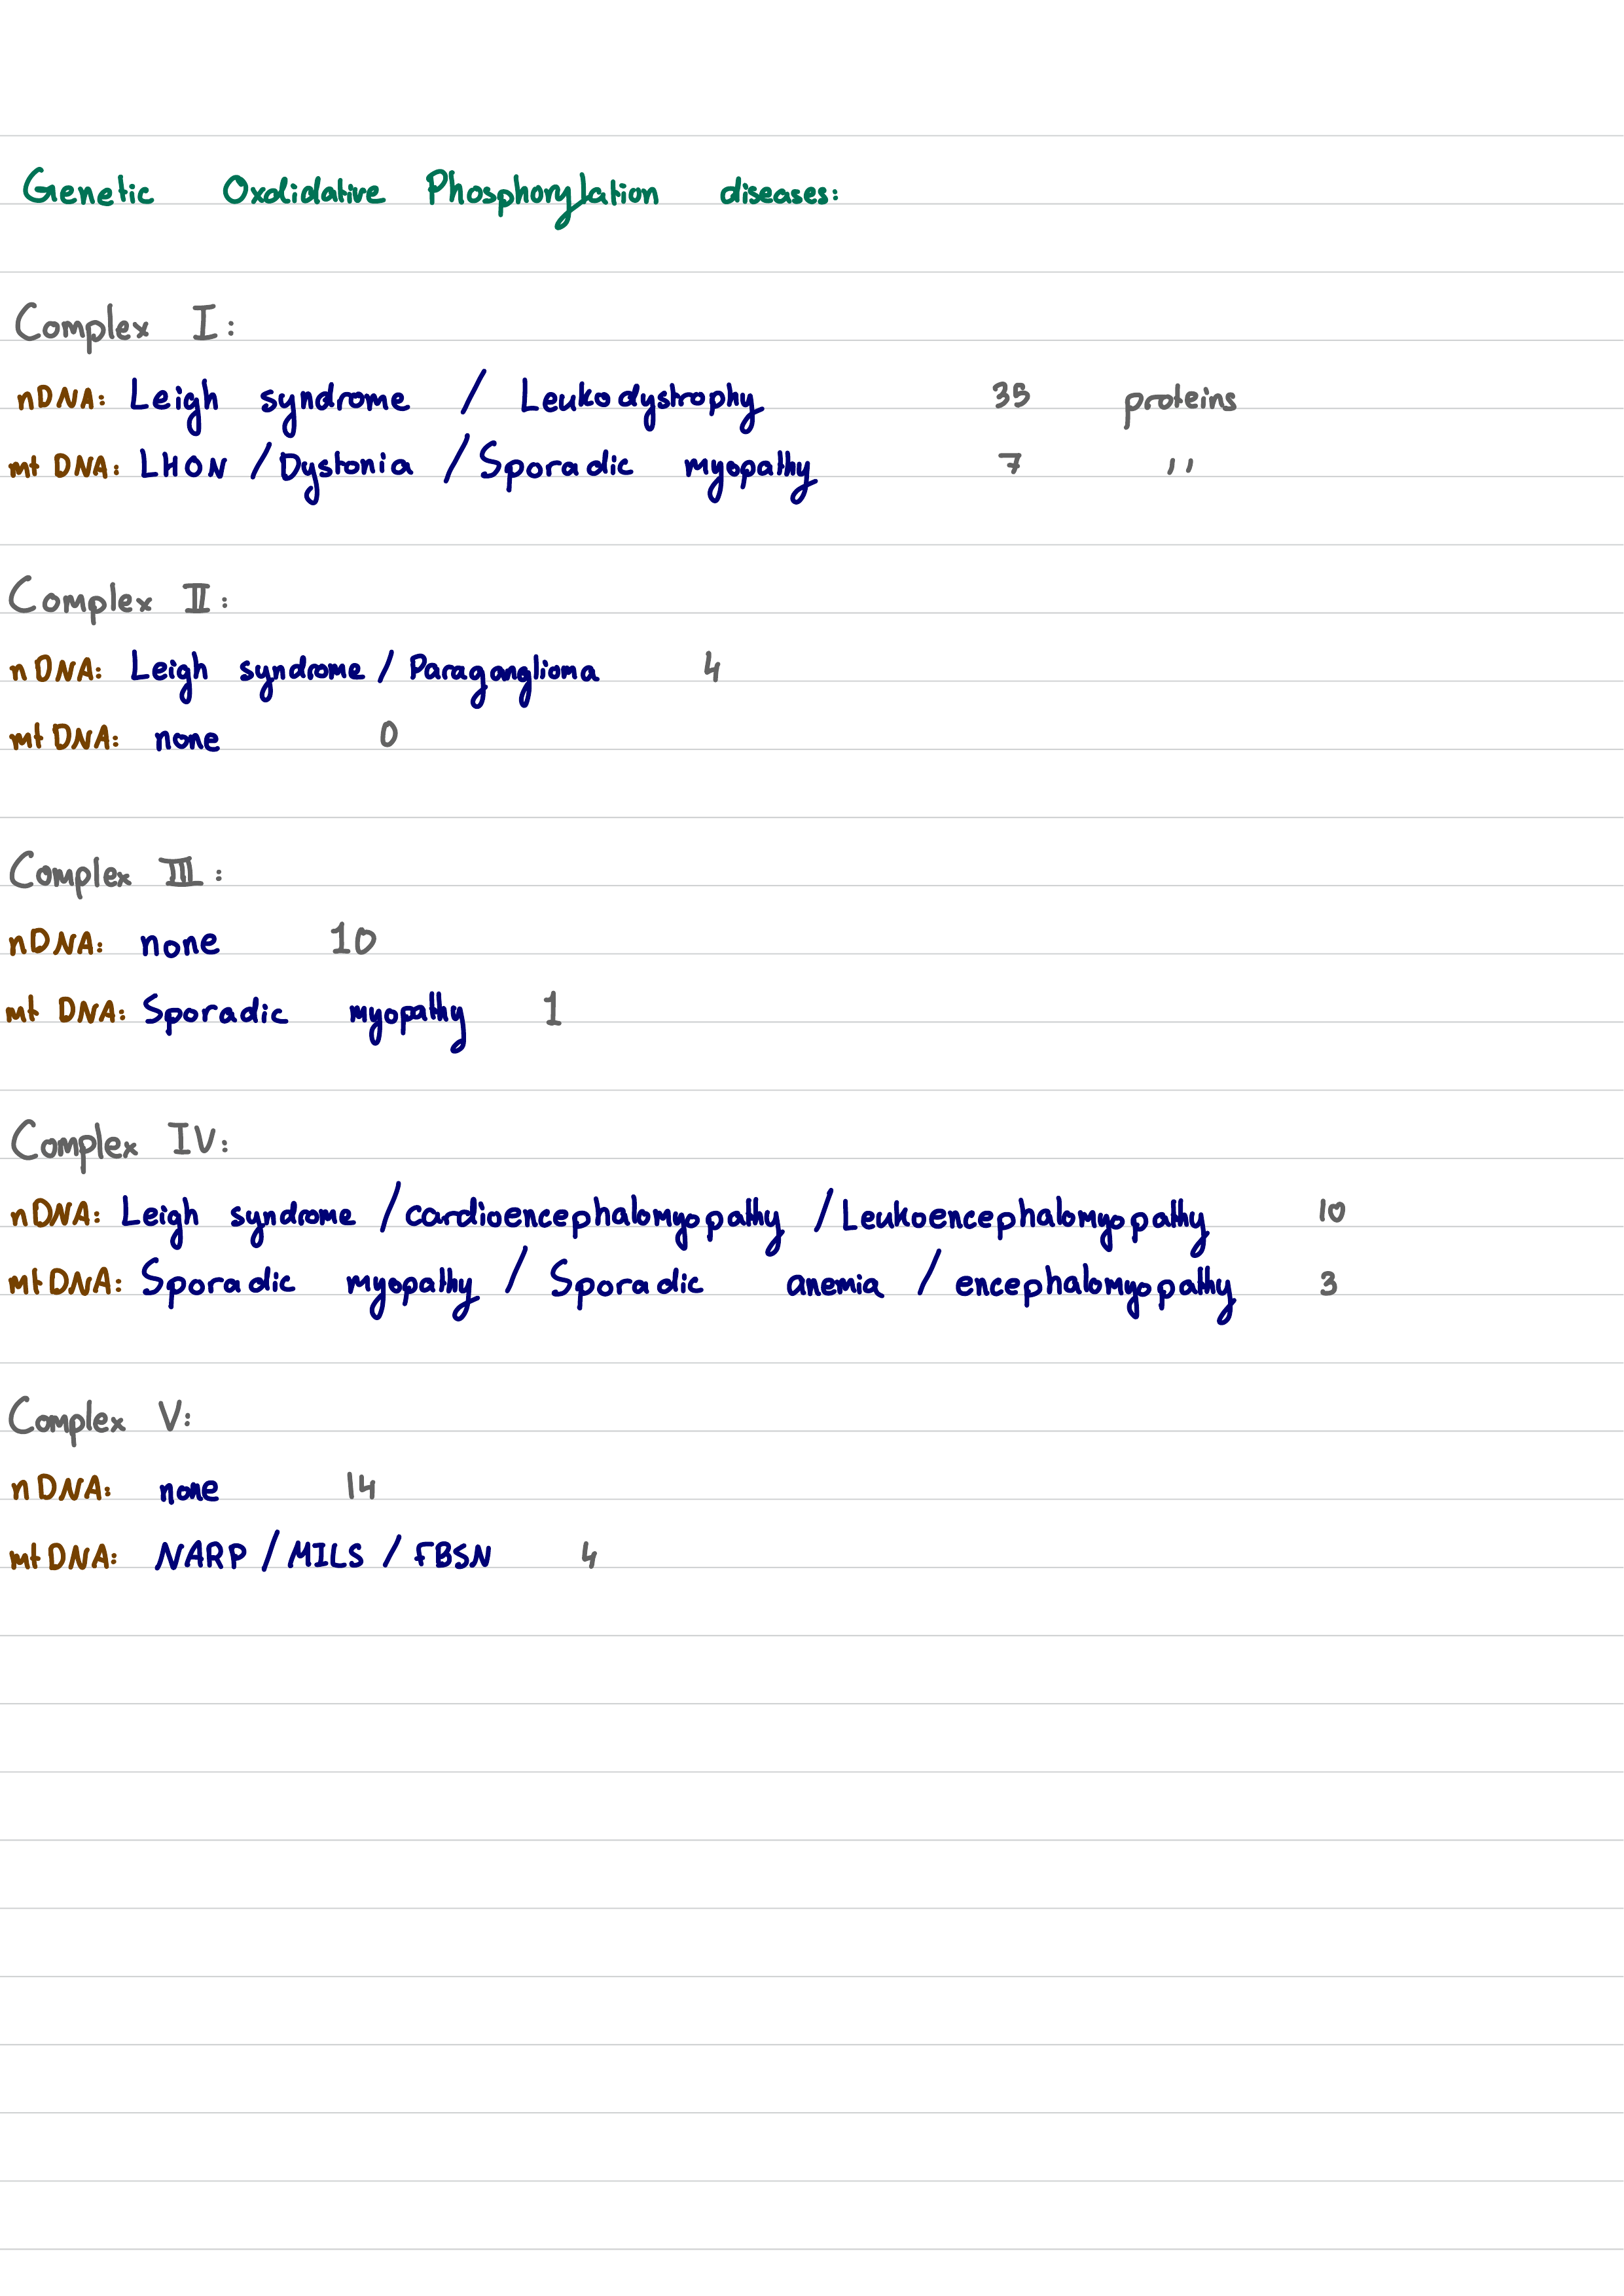 Genetic Oxdidative Phosphorylation diseases:
Complex I:
nDNA: Leigh syndrome / Leukodystrophy 35 proteins
mt DNA: LHON / Dystonia / Sporadic myopathy 7 ,,
Complex II:
nDNA: Leigh syndrome / Paraganglioma 4
mt DNA: none 0
Complex III:
nDNA: none 10
mt DNA: Sporadic myopathy 1
Complex IV:
nDNA: Leigh syndrome / cardioencephalomyopathy / Leukoencephalomyopathy 10
mt DNA: Sporadic myopathy / Sporadic anemia / encephalomyopathy 3
Complex V:
nDNA: none 14
mt DNA: NARP / MILS / FBSN 4